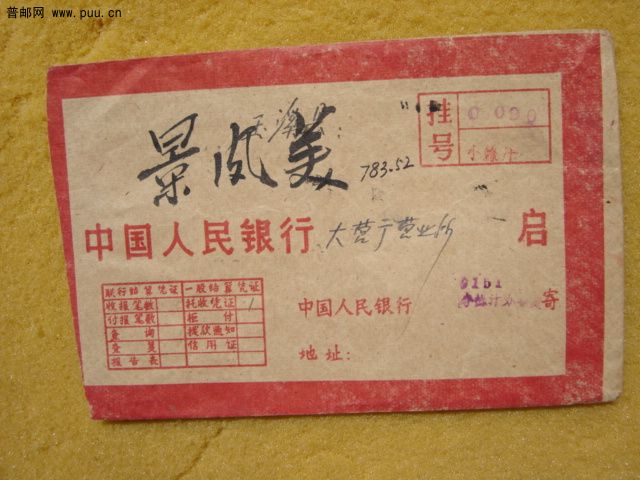 普邮网 www.puu.cn
挂号
0 090
景凤美
783.52
中国人民银行 大营子营业所 启
联行结算凭证 一般结算凭证
收报笔数 托收凭证 1
付报笔数 拒付
查询 拨款通知
查复 信用证
报告表
中国人民银行 0151 寄
地址: